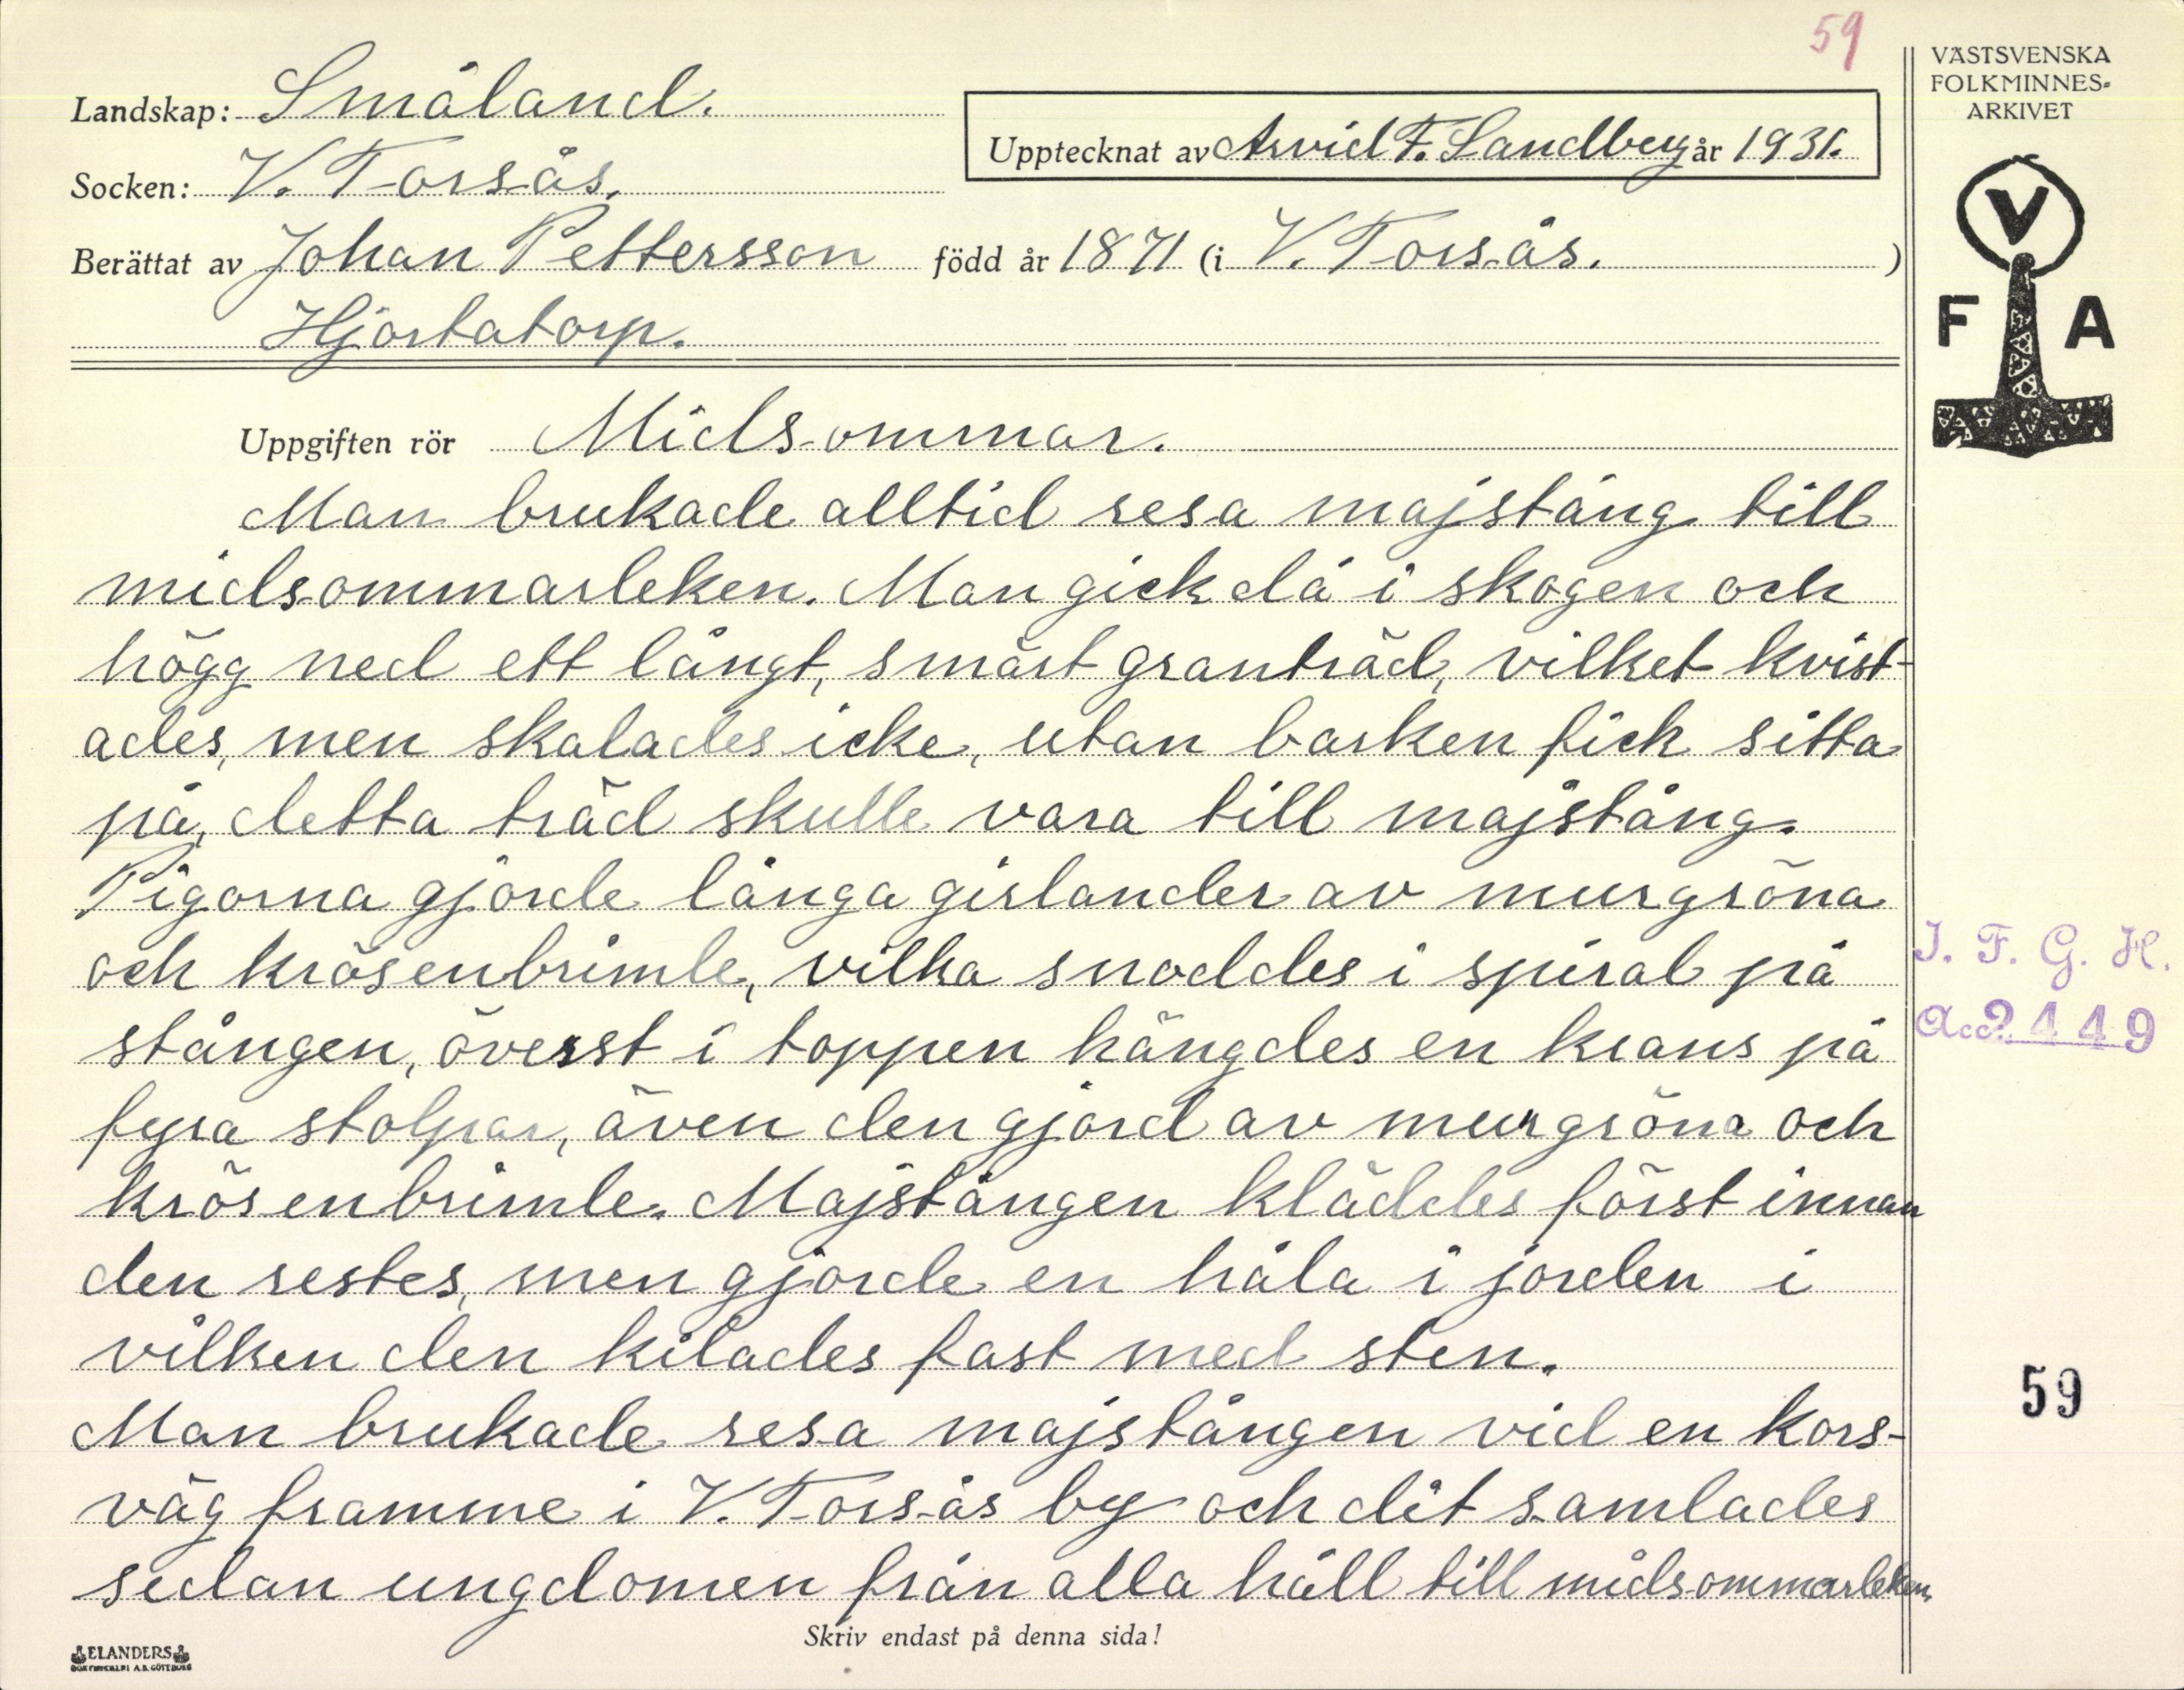 59
VÄSTSVENSKA
FOLKMINNES-
ARKIVET
Landskap: Småland.
Upptecknat av Arvid F. Sandberg år 1931.
Socken: V. Torsås.
Berättat av Johan Pettersson född år 1871 (i V. Torsås.)
Hjortatorp.
V
F A
Uppgiften rör Midsommar.
Man brukade alltid resa majstång till
midsommarleken. Man gick då i skogen och
högg ned ett långt, smärt granträd, vilket kvist-
ades, men skalades icke, utan barken fick sitta
på, detta träd skulle vara till majstång.
Pigorna gjorde långa girlander av murgröna
och krösenbrimle, vilka snoddes i spiral på
stången, överst i toppen hängdes en krans på
fyra stolpar, även den gjord av murgröna och
krösenbrimle. Majstången kläddes först innan
den restes, men gjorde en håla i jorden i
vilken den kilades fast med sten.
Man brukade resa majstången vid en kors-
väg framme i V. Torsås by och dit samlades
sedan ungdomen från alla håll till midsommarleken,
I. F. G. H.
Acc. 2449
59
Skriv endast på denna sida!
ELANDERS
BOKTRYCKERI A.B. GÖTEBORG